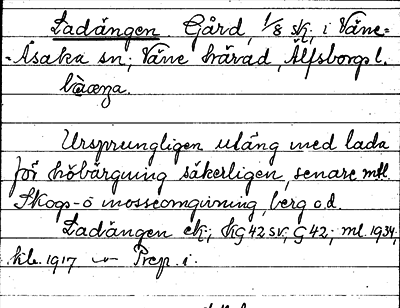 Ladängen. Gård, 1/8 sk, i Väne-
-Åsaka sn; Väne härad, Älfsborgs l.
Ursprungligen utäng med lada
för höbärgning säkerligen, senare mtl.
Skogs- o mosseomgivning, berg o.d.
Ladängen ek; kG42 sv; G42; ml. 1934;
klb. 1917 Prep. i.